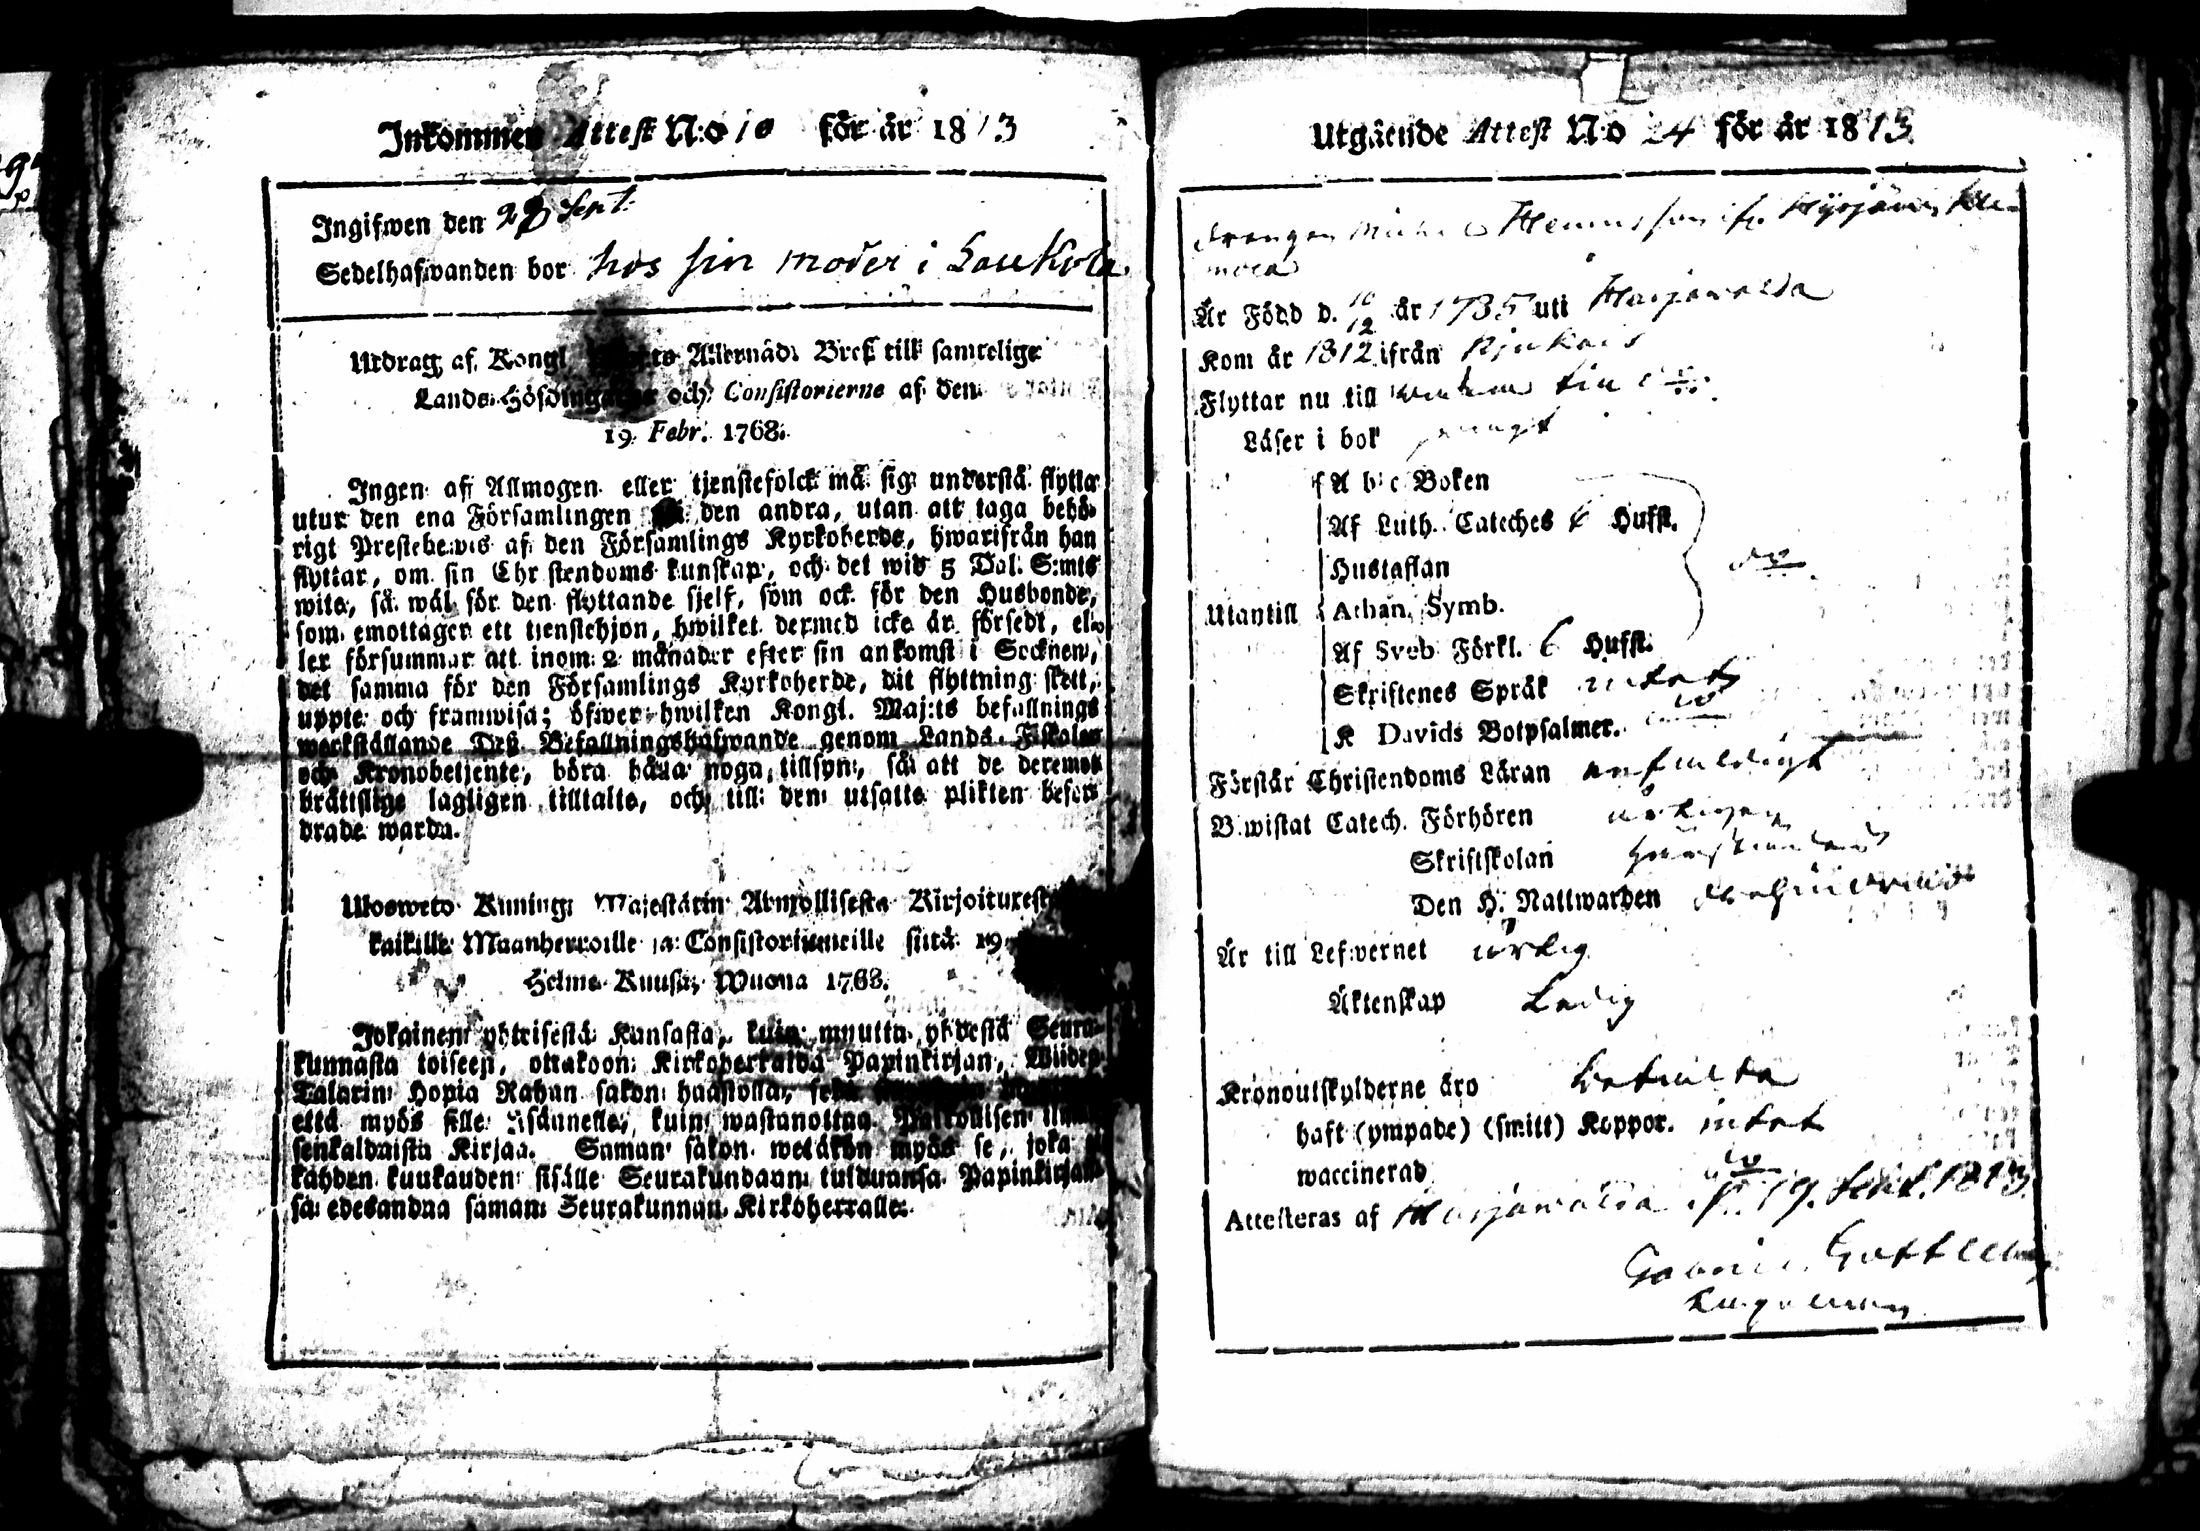 Inkommen Attest N:o 10 för år 1813
Ingifwen den 28 Sept.
Sedelhafwanden bor hos sin moder i Laukola
Utdrag af Kongl. Allernåd. Bref till samtelige
Lands-Höfdingarne och Consistorierne af den
19 Febr. 1768.
Ingen af Allmogen eller tjenstefolck må sig understå flytta
utur den ena Församlingen den andra, utan att taga behö-
rigt Prestebewis af den Församlings Kyrkoherde, hwarifrån han
flyttar, om sin Christendoms kunskap, och det wid 5 Dal. S:mts
wite, så wäl för den flyttande sjelf, som ock för den Husbonde,
som emottager ett tjenstehjon, hwilket dermed icke är försedt, el-
ler försummar att inom 2 månader efter sin ankomst i Socknen,
det samma för den Församlings Kyrkoherde, dit flyttning skett,
uppte och framwisa; öfwer hwilken Kongl. Maj:ts befallnings
werkställande Deß Befallningshafwande genom Lands-Fiskaler
och Kronobetjente, böra hafwa noga tillsyn, så att de deremot
brättslige lagligen tilltalte, och till den utsatte plikten befor-
drade warda.
Ulosweto Kuning. Majestätin Armollisesta Kirjoituxesta
kaikille Maanherroille ja Consistoriumeille siitä 19
Helme Kuusa, Wuona 1768.
Jokainen yhteisestä Kansasta, kuin muutta yhdestä Seura-
kunnasta toiseen, ottakoon Kirkoherralda Papinkirjan, Wiiden
Talarin Hopia Rahan sakon haastolla,
että myös sille Isännelle, kuin wastanottaa Palwolisen ilman
senkaldaista Kirjaa. Saman sakon wetäkön myös se, joka ei
kahden kuukauden sisälle Seurakundaan tulduansa Papinkirjan-
sa edesandaa saman Seurakunnan Kirkoherralle.
Utgående Attest N:o 24 för år 1813
Drengen Henricsson fr.
Är Född d. 10/12 år 1735 uti Harjawalda
Kom år 1812 ifrån Kjukais
Flyttar nu till
Läser i bok
A b c Boken
Af Luth. Cateches 6 Hufst.
Hustaflan
Utantill Athan. Symb.
Af Sveb Förkl. 6 Hufst.
Skriftenes Språk intet
K Davids Botpsalmer.
Förstår Christendoms Läran enfaldigt
Bewistat Catech. Förhören
Skriftskolan
Den H. Nattwarden
Är till Lefwernet ärlig
Äktenskap Ledig
Kronoutskylderne äro betalta
haft (ympade) (smitt) Koppor. intet
waccinerad
Attesteras af Harjawalda d. 19. Sept. 1813
Gabriel Gottleben